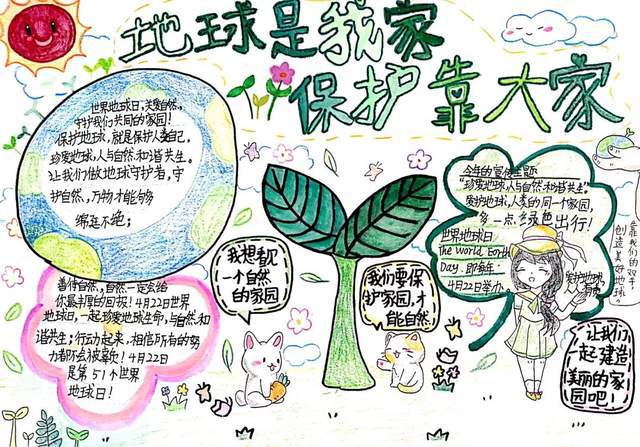 地球是我家
保护靠大家
世界地球日,关爱自然,
守护我们共同的家园!
保护地球,就是保护人类自己。
珍爱地球,人与自然和谐共生。
让我们做地球守护者,守
护自然,万物才能够
绵延不绝;
善待自然,自然一定会给
你最丰厚的回报!4月22世界
地球日,一起珍爱地球生命,与自然和
谐共生;行动起来,相信所有的努
力都不会被辜负!4月22日
是第51个世界
地球日!
我想都
一个自然
的家园
我们要保
护家园,才
能自然!
今年的宣传主题
"珍爱地球,人与自然和谐共生"
爱护地球,人类的同一个家园,
多一点,绿色出行!
世界地球日
The World Earth
Day.即每年
4月22日举办
爱护地球
靠我们的双手,
创造美好地球。
让我们
一起建造
美丽的家
园吧!